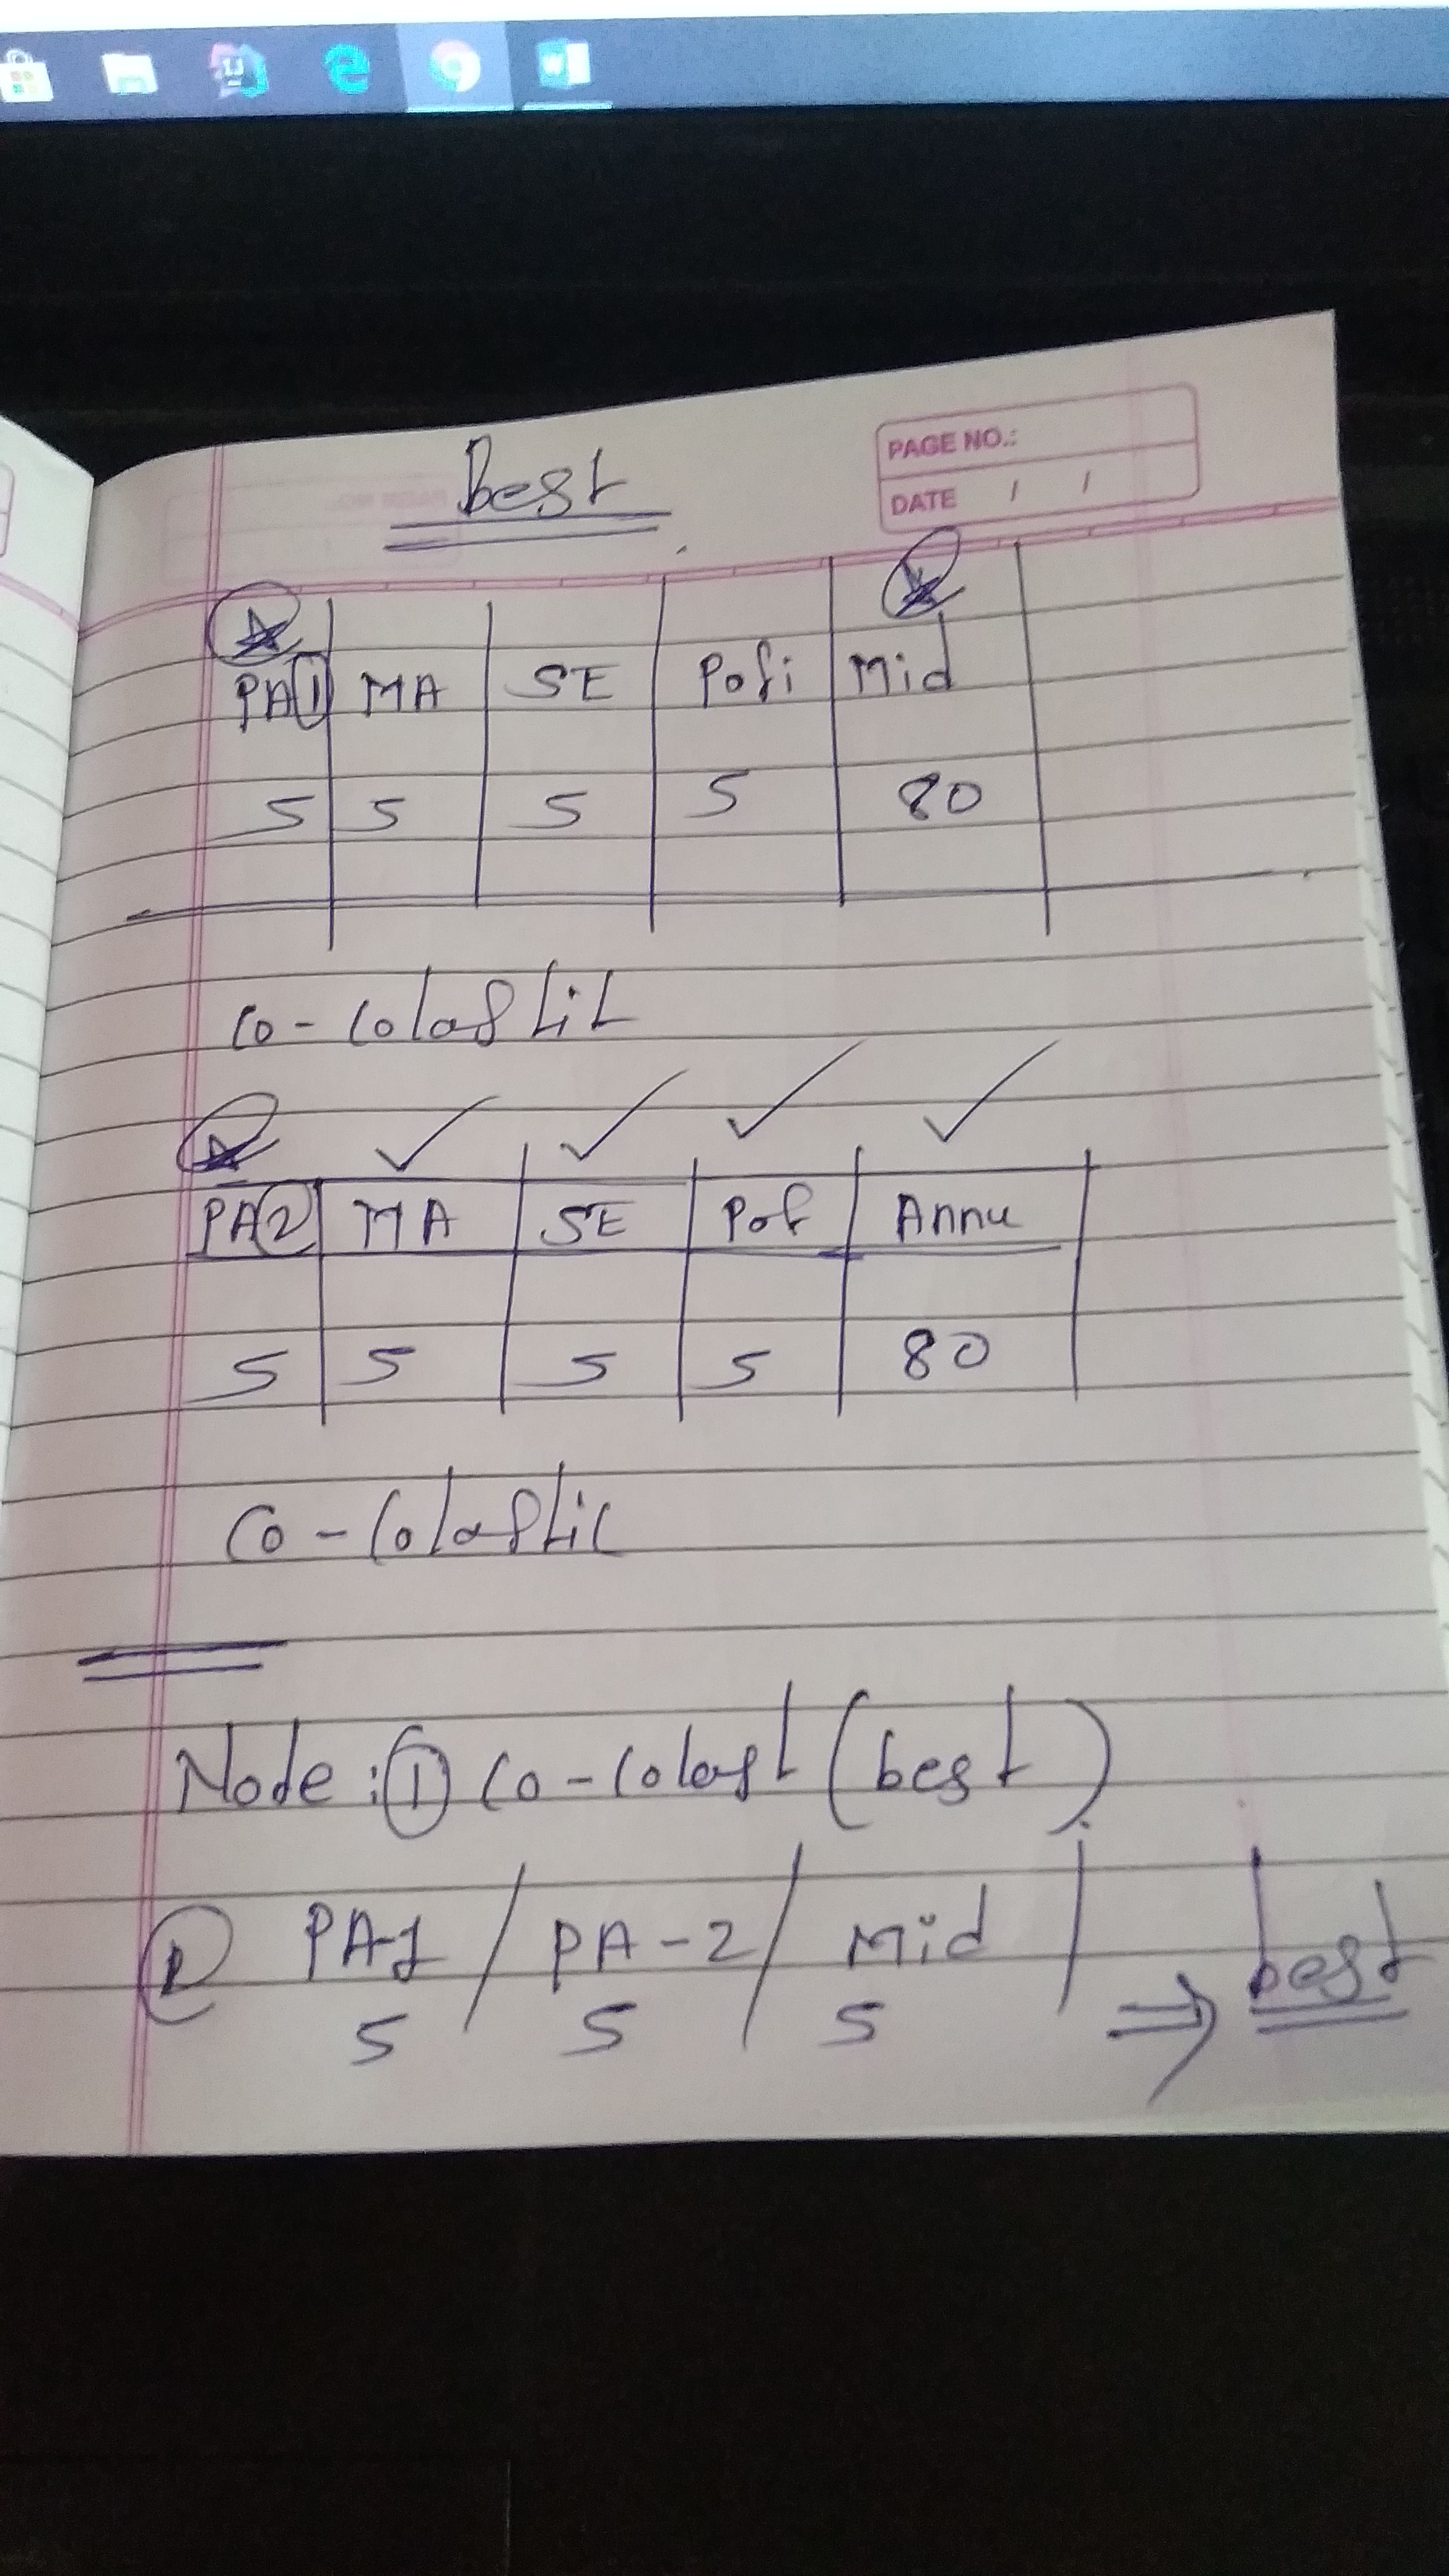 Best
PAGE NO.:
DATE / /
PA1 MA SE Pofi Mid
5 5 5 5 80
Co-Colastic
PA2 MA SE Pof Annu
5 5 5 5 80
Co-Colastic
Node: 1 Co-Colast (best)
PA-1 / PA-2 / Mid | ⇒ best
5 5 5